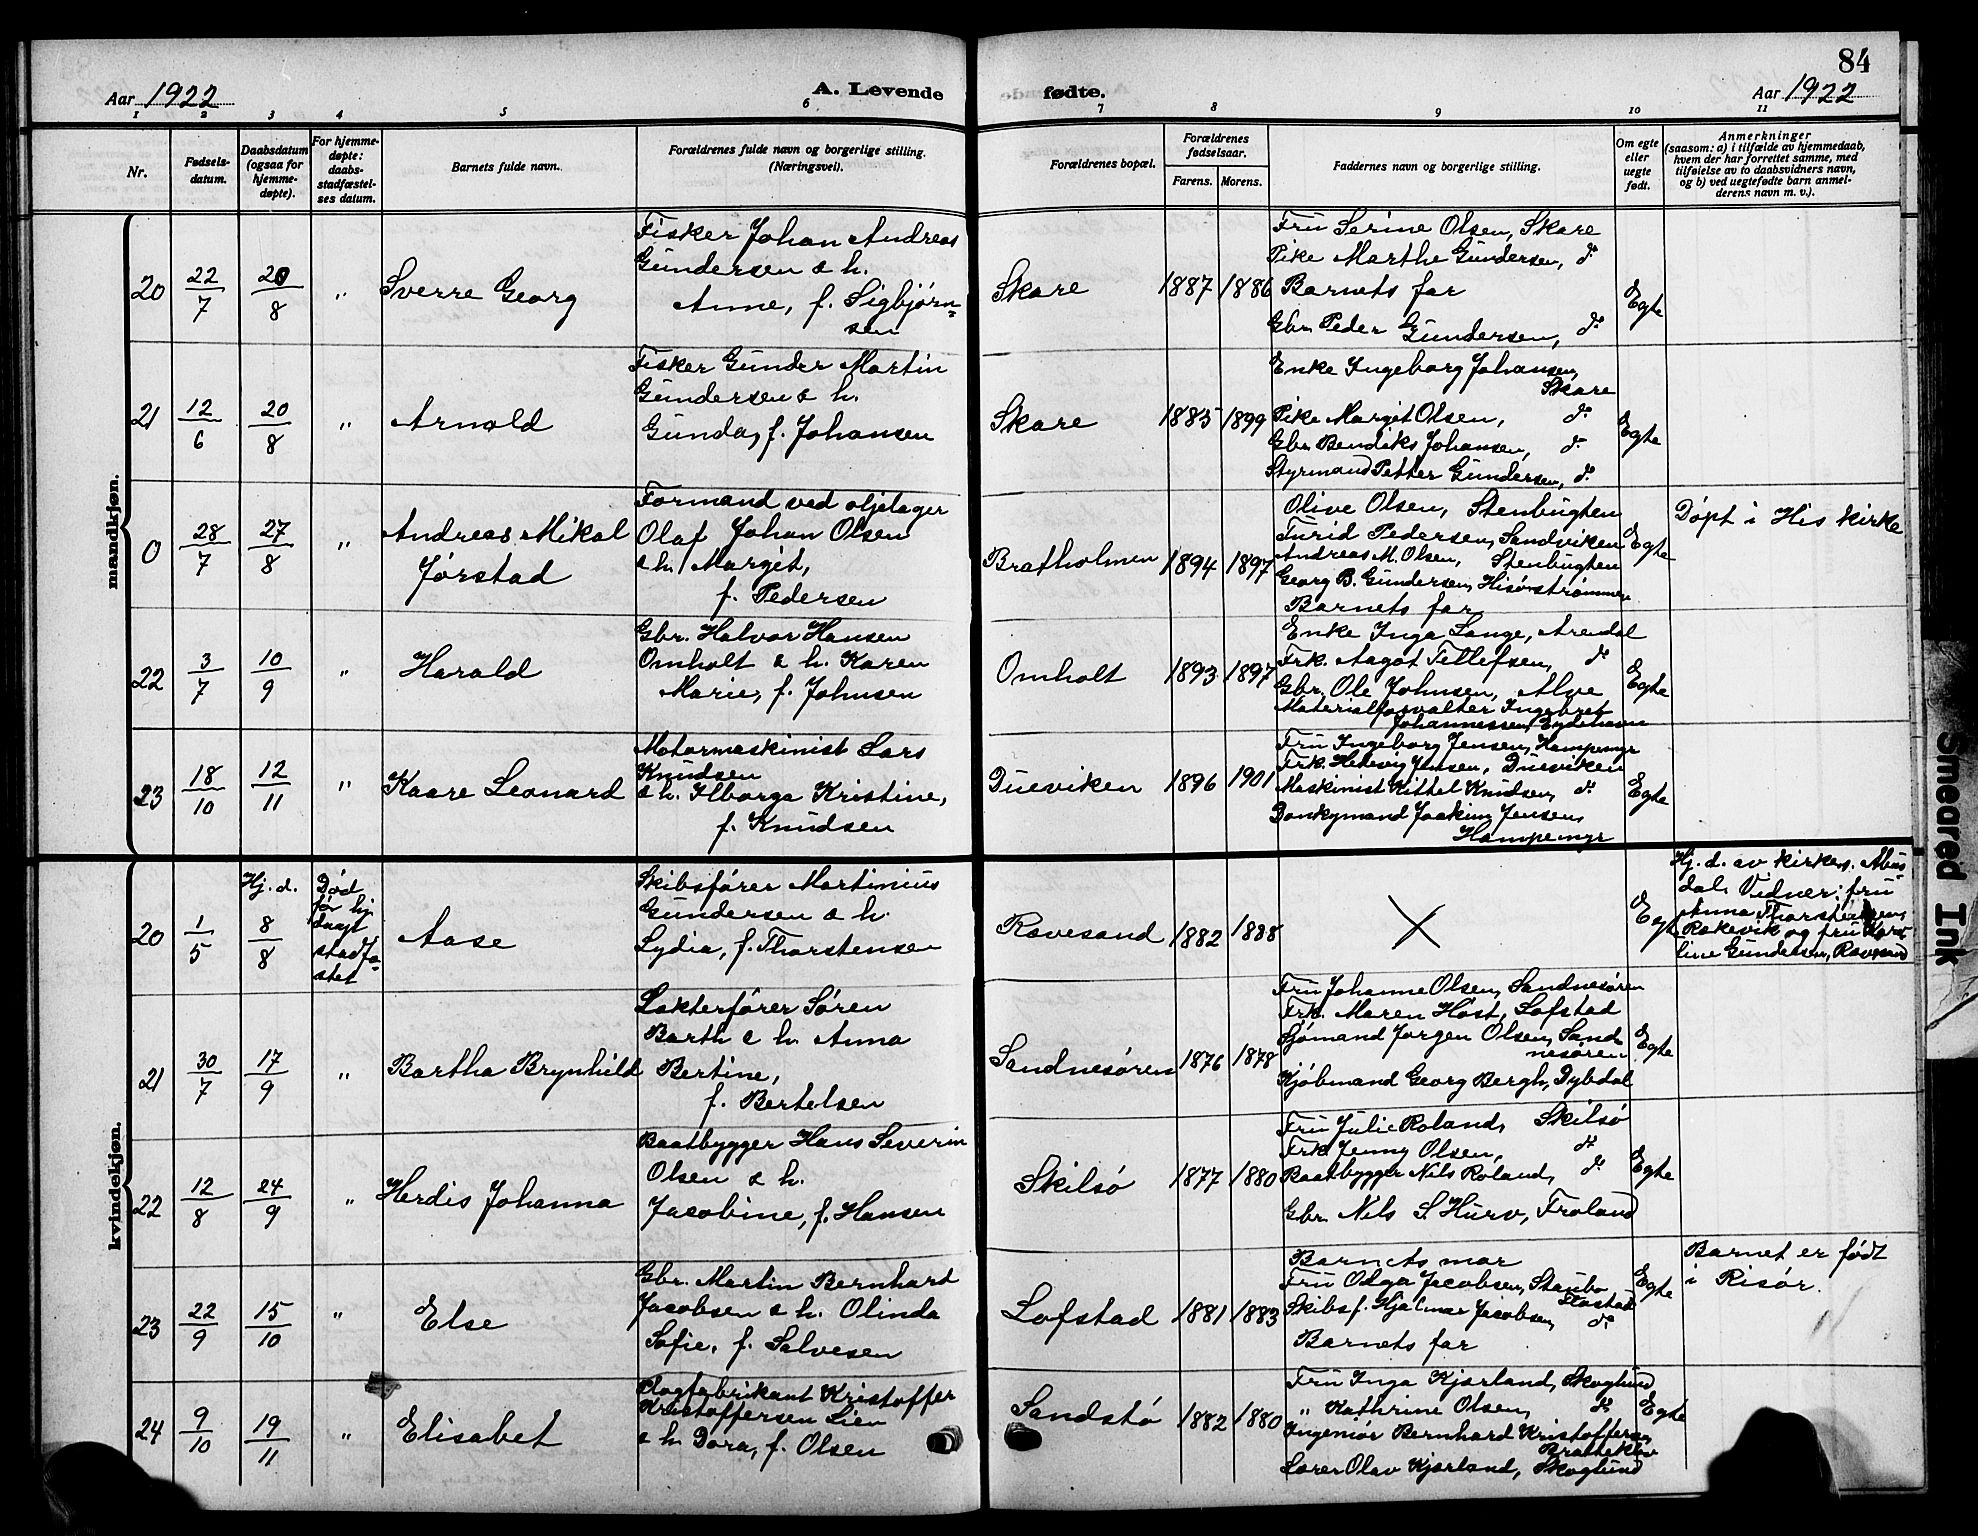 84
Aar 1922
A. Levende fødte.
Aar 1922
1 2 3 4 5 6 7 8 9 10 11
Nr.
Fødsels-datum.
Daabsdatum (ogsaa for hjemme-døpte).
For hjemme-døpte: daabs-stadfæstel-ses datum.
Barnets fulde navn.
Forældrenes fulde navn og borgerlige stilling. (Næringsvei).
Forældrenes bopæl.
Forældrenes fødselsaar.
Farens. Morens.
Faddernes navn og borgerlige stilling.
Om egte eller uegte født.
Anmerkninger
(saasom: a) i tilfælde av hjemmedaab,
hvem der har forrettet samme, med
tilføielse av to daabsvidners navn,
og b) ved uegtefødte barn anmel-
derens navn m. v.).
mandkjøn.
20 22/7 20/8 " Sverre Georg
Fisker Johan Andreas
Gundersen & h.
Anne, f. Sigbjørn=
sen
Skare 1887 1886
Fru Serine Olsen, Skare
Pike Marthe Gundersen, do
Barnets far
Gbr. Peder Gundersen, do
Egte
21 12/6 20/8 " Arnold
Fisker Gunder Martin
Gundersen & h.
Gunda, f. Johansen
Skare 1885 1899
Enke Ingeborg Johansen,
Skare
Pike Margit Olsen, do
Gbr. Bendiks Johansen, do
Styrmand Petter Gundersen, do
Egte
0 28/7 27/8 " Andreas Mikal
Jørstad
Formand ved oljelager
Olaf Johan Olsen
& h. Margit,
f. Pedersen
Bratholmen 1894 1897
Olive Olsen, Stenbugten
Turid Pedersen, Sandviken
Andreas M. Olsen, Stenbugten
Georg B. Gundersen, Hisønstrømmen
Barnets far
Egte
Døpt i His kirke
22 3/7 10/9 " Harald
Gbr. Halvor Hansen
Omholt & h. Karen
Marie, f. Johnsen
Omholt 1893 1897
Enke Inga Lange, Arendal
Frk. Aagot Tellefsen, do
Gbr. Ole Johnsen, Alve
Materialforvalter Ingebret
Johannessen, Eydehavn
Egte
23 18/10 12/11 " Kaare Leonard
Motormaskinist Lars
Knudsen
& h. Ilborga Kristine,
f. Knudsen
Dueviken 1896 1901
Fru Ingeborg Jensen, Hampemyr
Frk. Hedevig Jensen, Dueviken
Maskinist Kittel Knudsen, do
Donkymand Joakim Jensen,
Hampemyr
Egte
kvindekjøn.
20 1/5 Hj. d. 8/8
Død
før hj.
daap
stadfæ=
stet
Aase
Skibsfører Martinius
Gundersen & h.
Lydia, f. Thorstensen
Ravesand 1882 1888
X
Egte
Hj. d. av kirkes. Abus
dal. Vidner: fru
Anna Thorstensen,
Rakevik og fru Karo
line Gundersen, Ravesand
21 30/7 17/9 " Bartha Brynhild
Lekterfører Søren
Barth & h. Anna
Bertine,
f. Bertelsen
Sandnesøren 1876 1878
Fru Johanne Olsen, Sandnesøren
Frk. Maren Høst, Lofstad
Sjømand Jørgen Olsen, Sand
nesøren
Kjøbmand Georg Bergh, Dybdal
Egte
22 12/8 24/9 " Herdis Johanna
Baatbygger Hans Severin
Olsen & h.
Jacobine, f. Hansen
Skilsø 1877 1880
Fru Julie Roland, Skilsø
Frk. Jenny Olsen, do
Baatbygger Nils Roland, do
Gbr. Nils S. Hurv, Froland
Egte
23 22/9 15/10 " Else
Gbr. Martin Bernhard
Jacobsen & h. Olinda
Sofie, f. Salvesen
Lofstad 1881 1883
Barnets mor
Fru Olga Jacobsen, Staubo
Flostad
Skibsf. Hjalmar Jacobsen, do
Barnets far
Egte
Barnet er født
i Risør.
24 9/10 19/11 " Elisabet
Kristoffer
Kristoffersen Lien
& h. Dora, f. Olsen
Sandstø 1882 1880
Fru Inga Kjørland, Skoglund
" Kathrine Olsen, do
Ingeniør Bernhard Kristoffersen,
Brattekleiv
Lærer Olav Kjørland, Skoglund
Egte
Smeared Ink